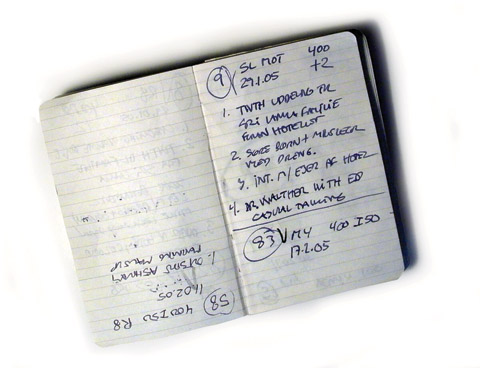 9 SL MOT 400
29.1.05 +2
1. TWTH UDDELING TIL
SRI LANKA FAMILIE
FORAN HOTELLET
2. SORTE BØRN + MÆGLER
VED DRENG.
3. INT. M/ EJER AF HOTEL
4. DR WALTHER WITH ED
CASUAL TALKING
83 MY 400 ISO
17.2.05
58
400 ISO R8
11.02.05
1. OUTSIDE